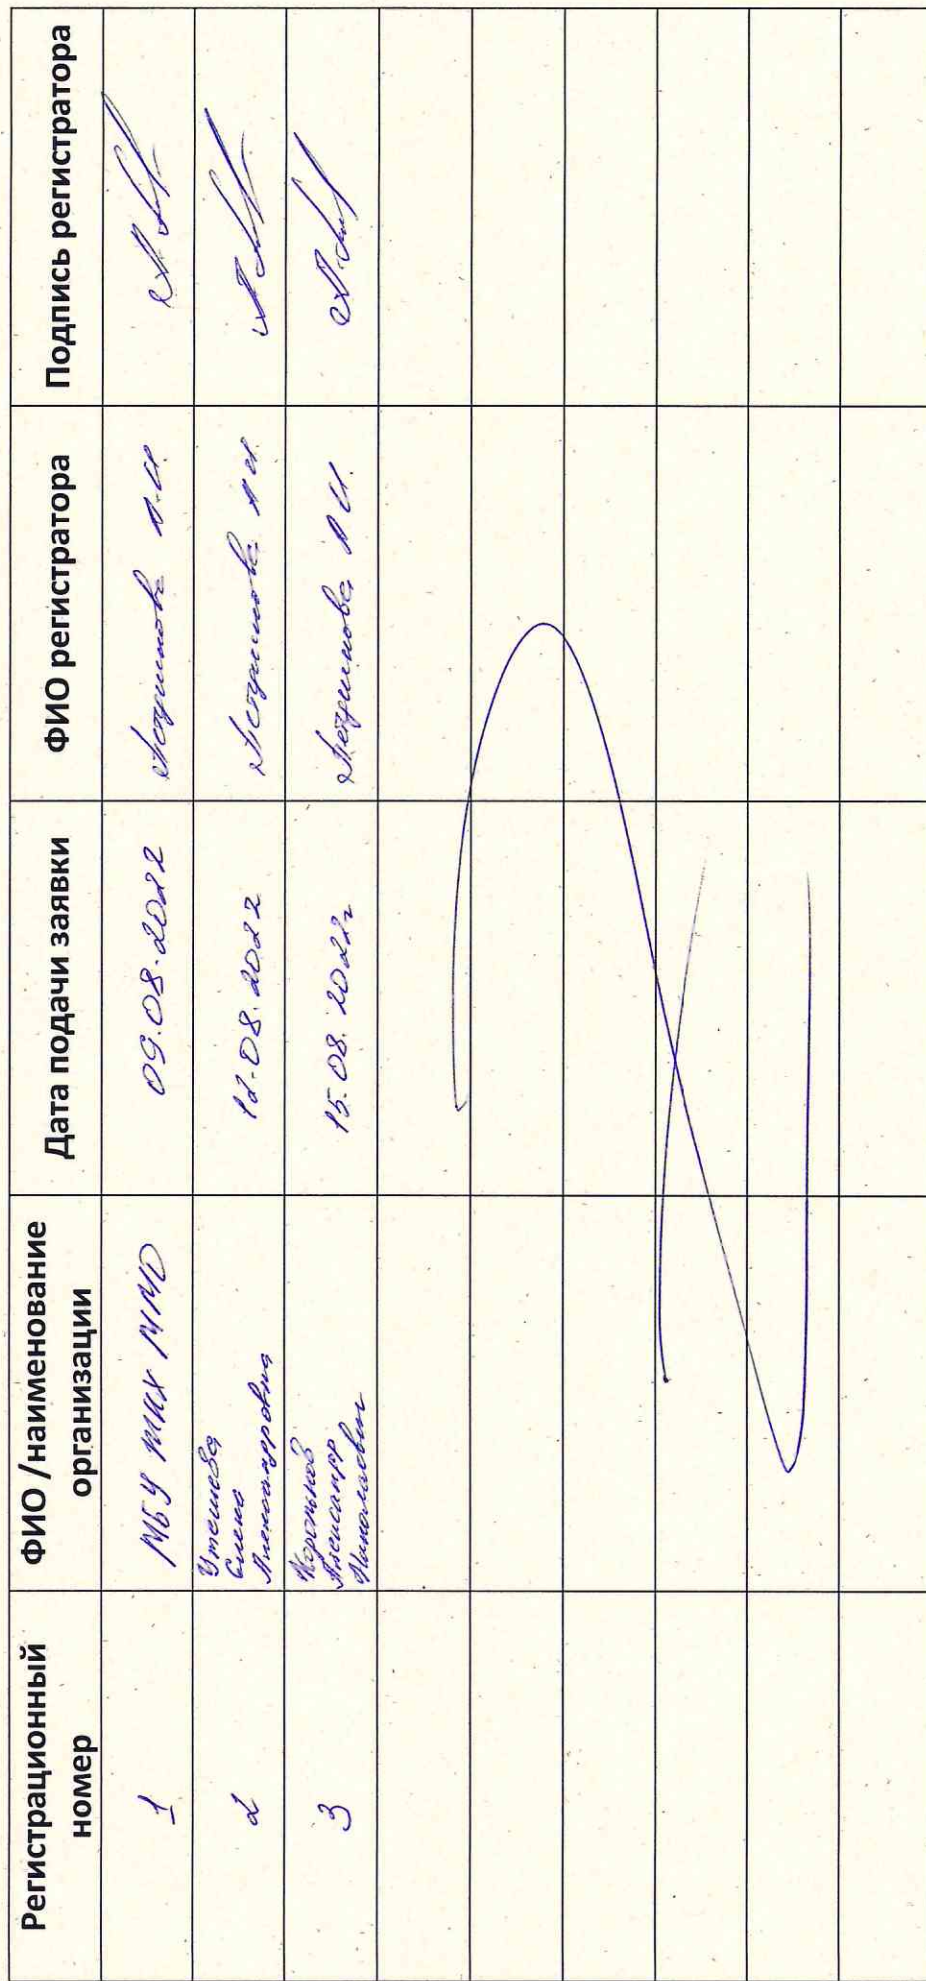 Регистрационный
номер
ФИО /наименование
организации
Дата подачи заявки
ФИО регистратора
Подпись регистратора
1
МБУ ММО
09.08.2022
А.И.
2
Утешева
Елена
Александровна
12.08.2022
А И
3
Александр
Николаевич
15.08.2022г
А И.